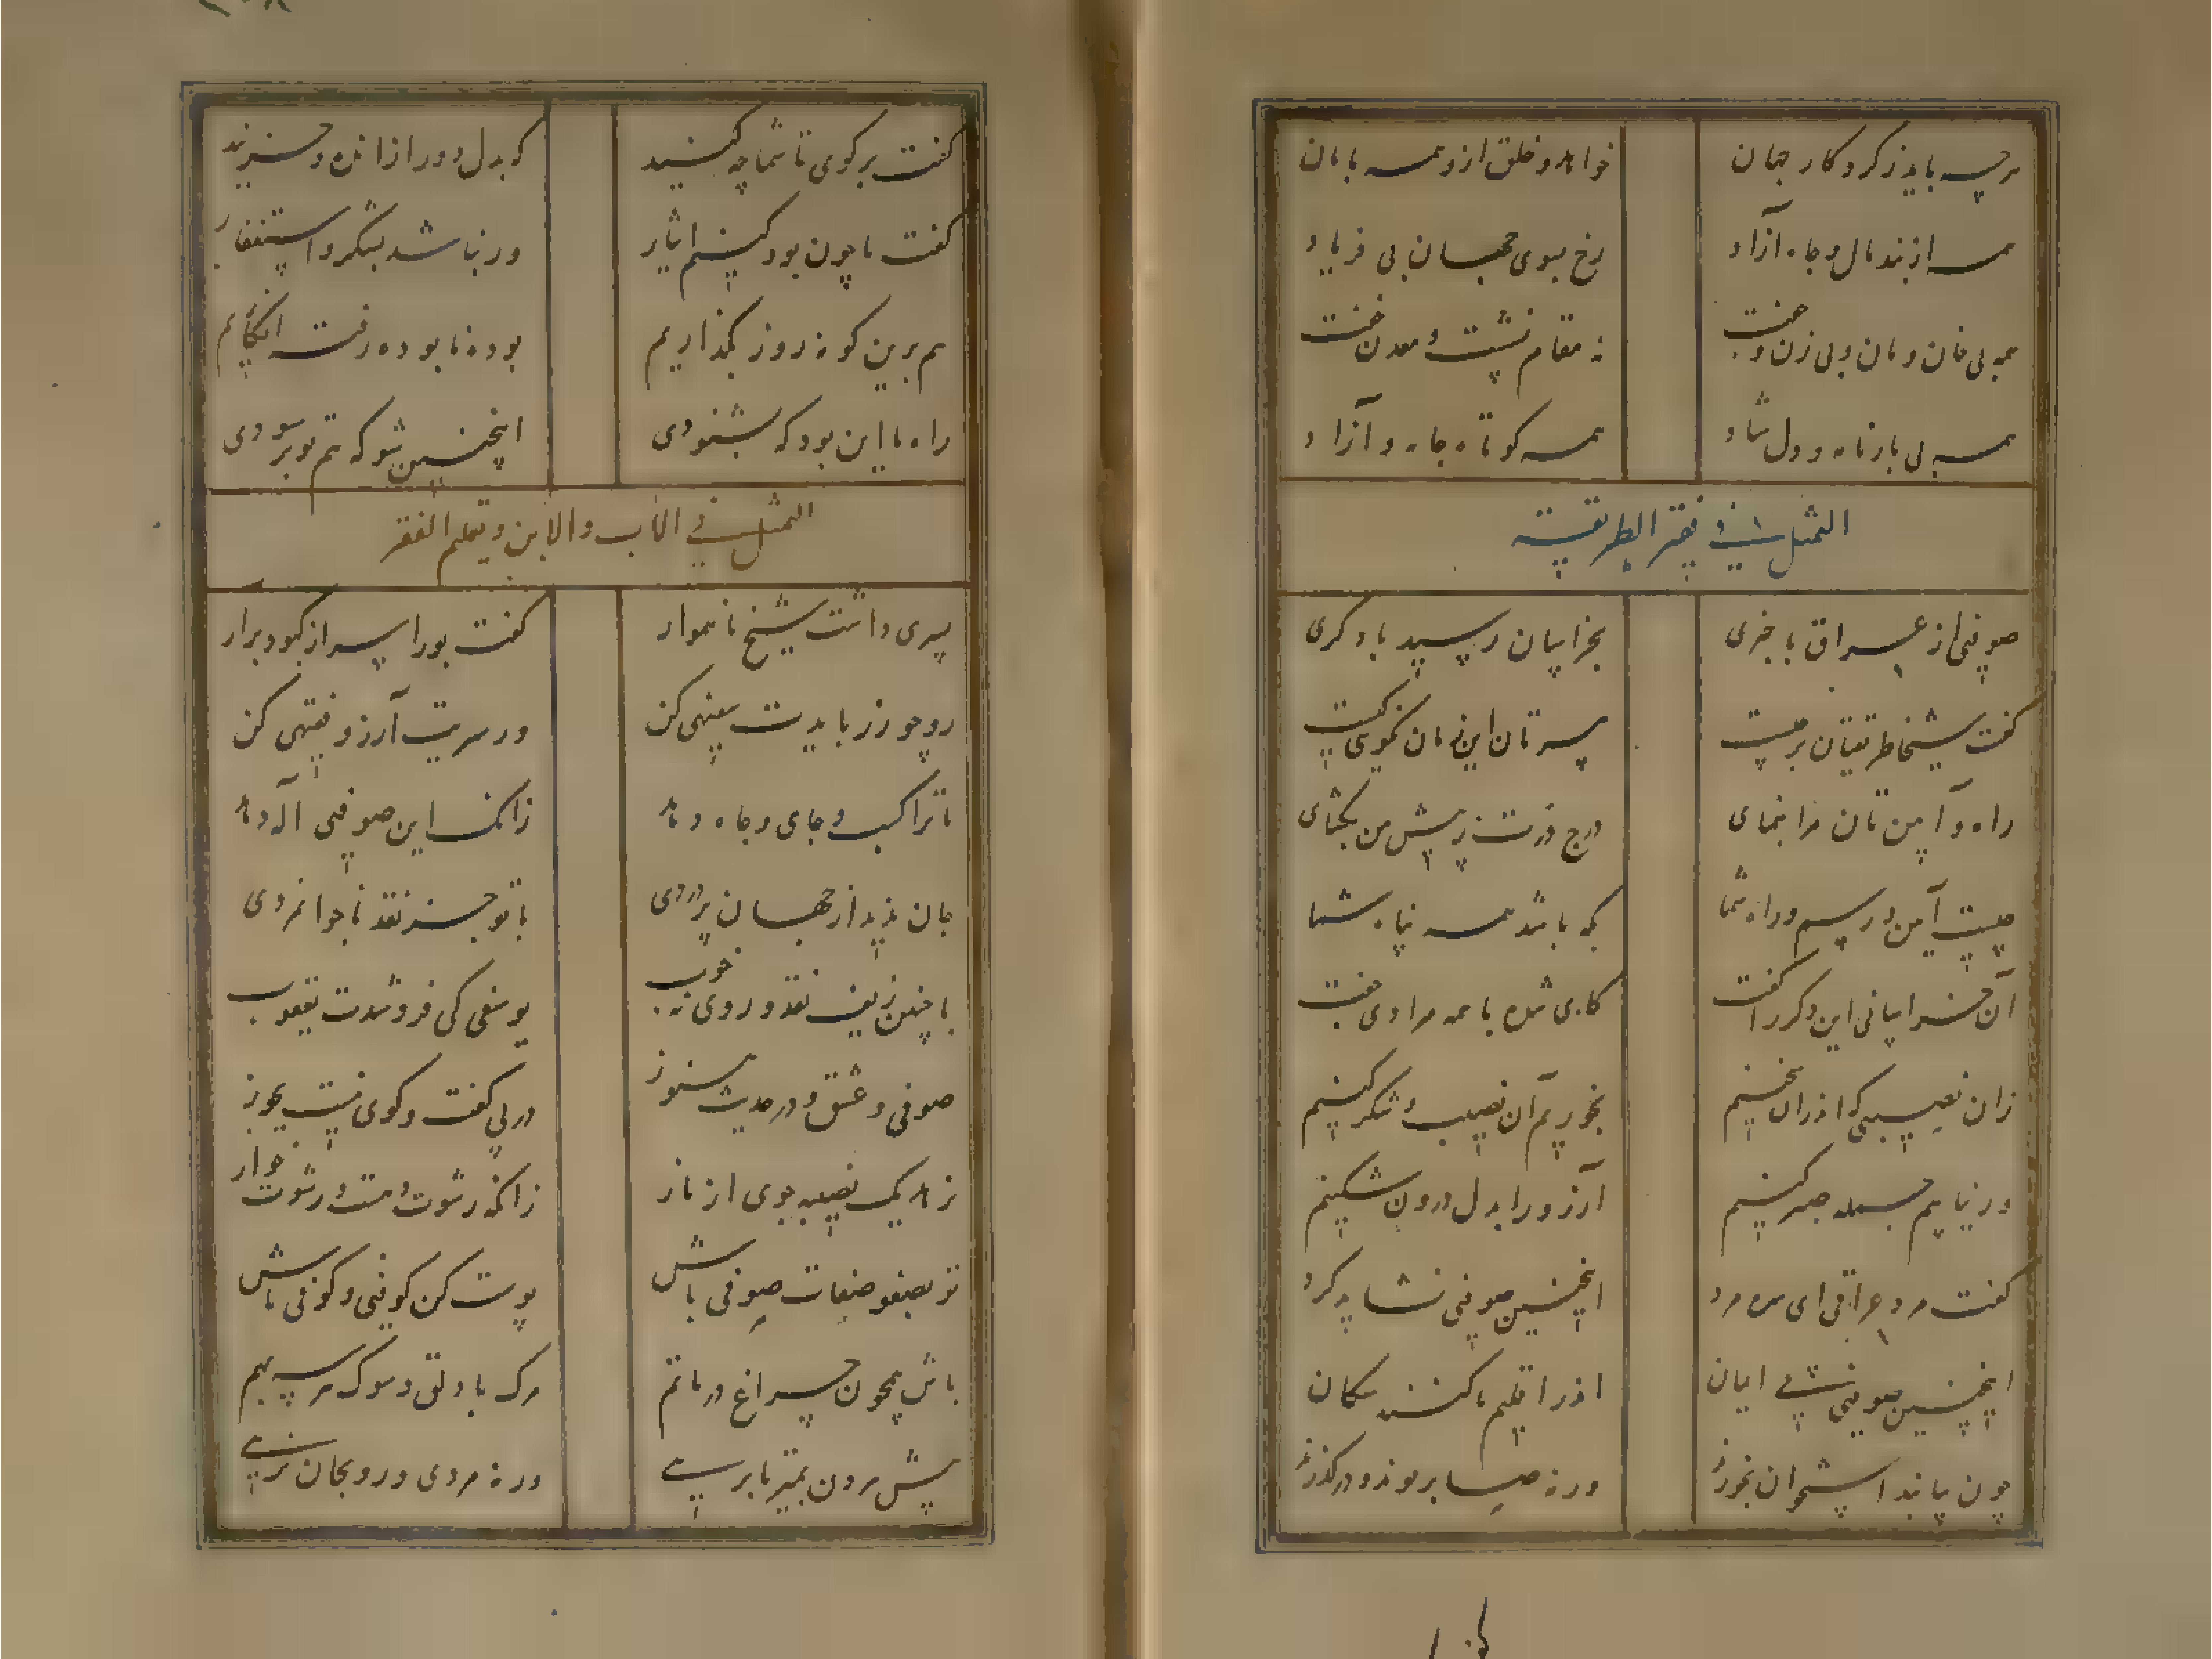 هرچه باید ز کردکار جهان
خواهد و خلق ازو همه بامان
همه از بند مال و جاه آزاد
رخ بسوی جهان بی فریاد
همه بی خان و مان و بی زن و جفت
نه مقام نشست و معدن خفت
همه بی بارنامه و دل شاد
همه کوتاه جامه و آزاد
التمثل فی فقر الطریقة
صوفئی از عراق باخبری
بخراسان رسید با دکری
کفت شیخا طریقتان بر چیست
پیرتان این زمان بکوی کیست
راه و آیین تان مرا بنمای
درج درت ز پیش من بکشای
چیست آیین و رسم و راه شما
که باشد همه پناه شما
آن خراسانی این دکر را کفت
کای شده با همه مرادی جفت
زان نصیبی که اندر آن سخنیم
بخوریم آن نصیب و شکر کنیم
ور نیابیم جمله صبر کنیم
آرزو را بدل درون شکنیم
کفت مرد عراقی ای سره مرد
اینچنین صوفئی نشاید کرد
اینچنین صوفئی بی ایمان
اندر اقلیم ما کنند سکان
چون بیابند استخوان بخورند
ورنه صابر بوند و درکذرند
کفت برکوی تا شما چه کنید
که بدل دور از انده و حزنید
کفت ما چون بود کنیم ایثار
ور نباشد بشکر و استغفار
هم برین کونه روز بکذاریم
بوده نابوده رفته انکاریم
راه ما این بود که بشنودی
اینچنین شو که هم تو بر سودی
التمثل فی الاب والابن و تعلیم الفقر
پسری داشت شیخ ناهموار
کفت بورا پسر از کود برار
رو چو زر بایدت سفیهی کن
ور سریت آرزو فقیهی کن
تا ترا کسب و جای و جاه دهد
زانک این صوفئی اله دهد
جان پدید از جهان پر دردی
با تو جز نقد ناجوانمردی
با چنین زیف نقد و روی نه خوب
یوسفی کی فروشدت یعقوب
صوفی و عشق و در حدیث هنوز
در پی کفت و کوی نیست یجوز
زهد یک نصیبه جوی از نار
زانکه رشوت دهست و رشوت خوار
تو بصفو صفات صوفی باش
پوست کن کوفئی و کوفی باش
باش همچون چراغ در ماتم
مرک با دلق و سوک هر سه بهم
پیش مردن بمیر تا برسی
ورنه مردی درو بجان نرسی